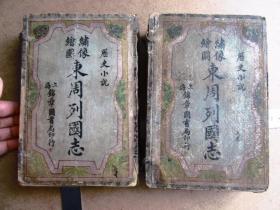 歷史小說
繡像
繪圖
東周列國志
上海
錦章圖書局印行
歷史小說
繡像
繪圖
東周列國志
上海
錦章圖書局印行